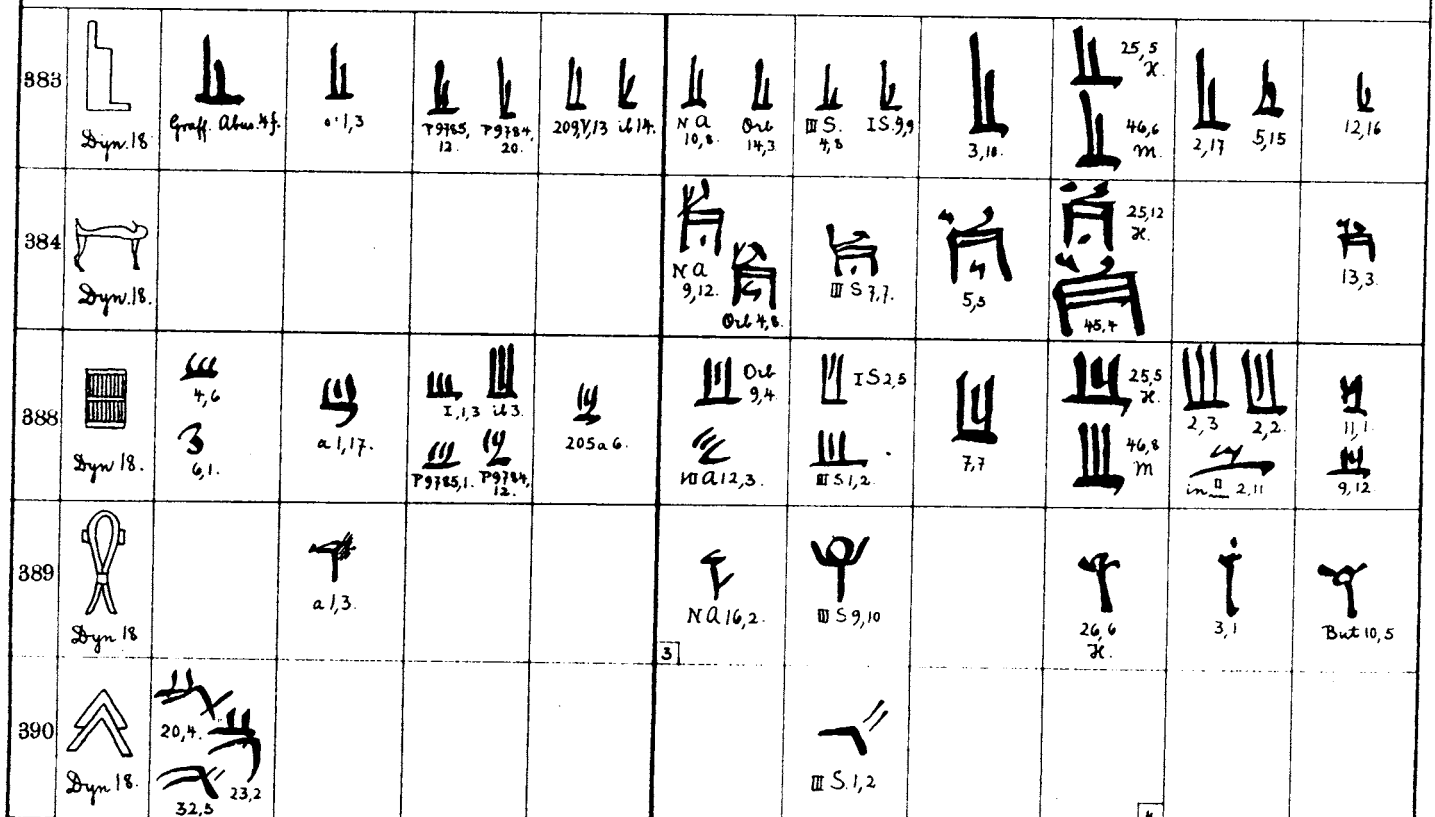 383 Dyn. 18 Graff. Abus. 4f. a. 1,3 P9785, 12. P9784, 20. 209,V,13 ib 14. N A 10,8. Orb 14,3. III S. 4,8 I S. 9,9 3,10. 25,5 H. 46,6 M. 2,17 5,15 12,16
384 Dyn. 18. N A 9,12. Orb 4,8. III S 7,7. 5,5 25,12 H. 45,4 13,3.
388 Dyn 18. 4,6 6,1. a 1,17. I,1,3 ib 3. P9785,1. P9784, 12. 205a 6. Orb 9,4. A 12,3. I S 2,5 III S 1,2. 7,7 25,5 H. 46,8 M 2,3 2,2. in 2,11 11,1. 9,12.
389 Dyn 18 a 1,3. N A 16,2. III S 9,10 26,6 H. 3,1 But 10,5
3
390 Dyn 18. 20,4. 23,2 32,5 III S. 1,2